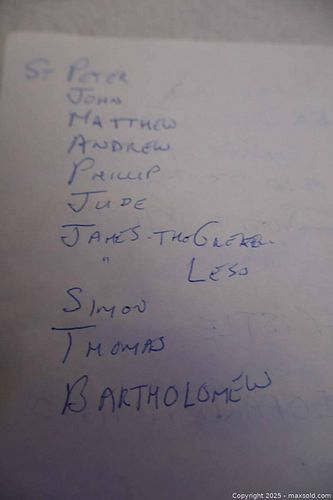 St PETER
JOHN
MATTHEW
ANDREW
PHILLIP
JUDE
JAMES-THE GREATER
" LESS
SIMON
THOMAS
BARTHOLOMEW
Copyright 2025 - maxsold.com